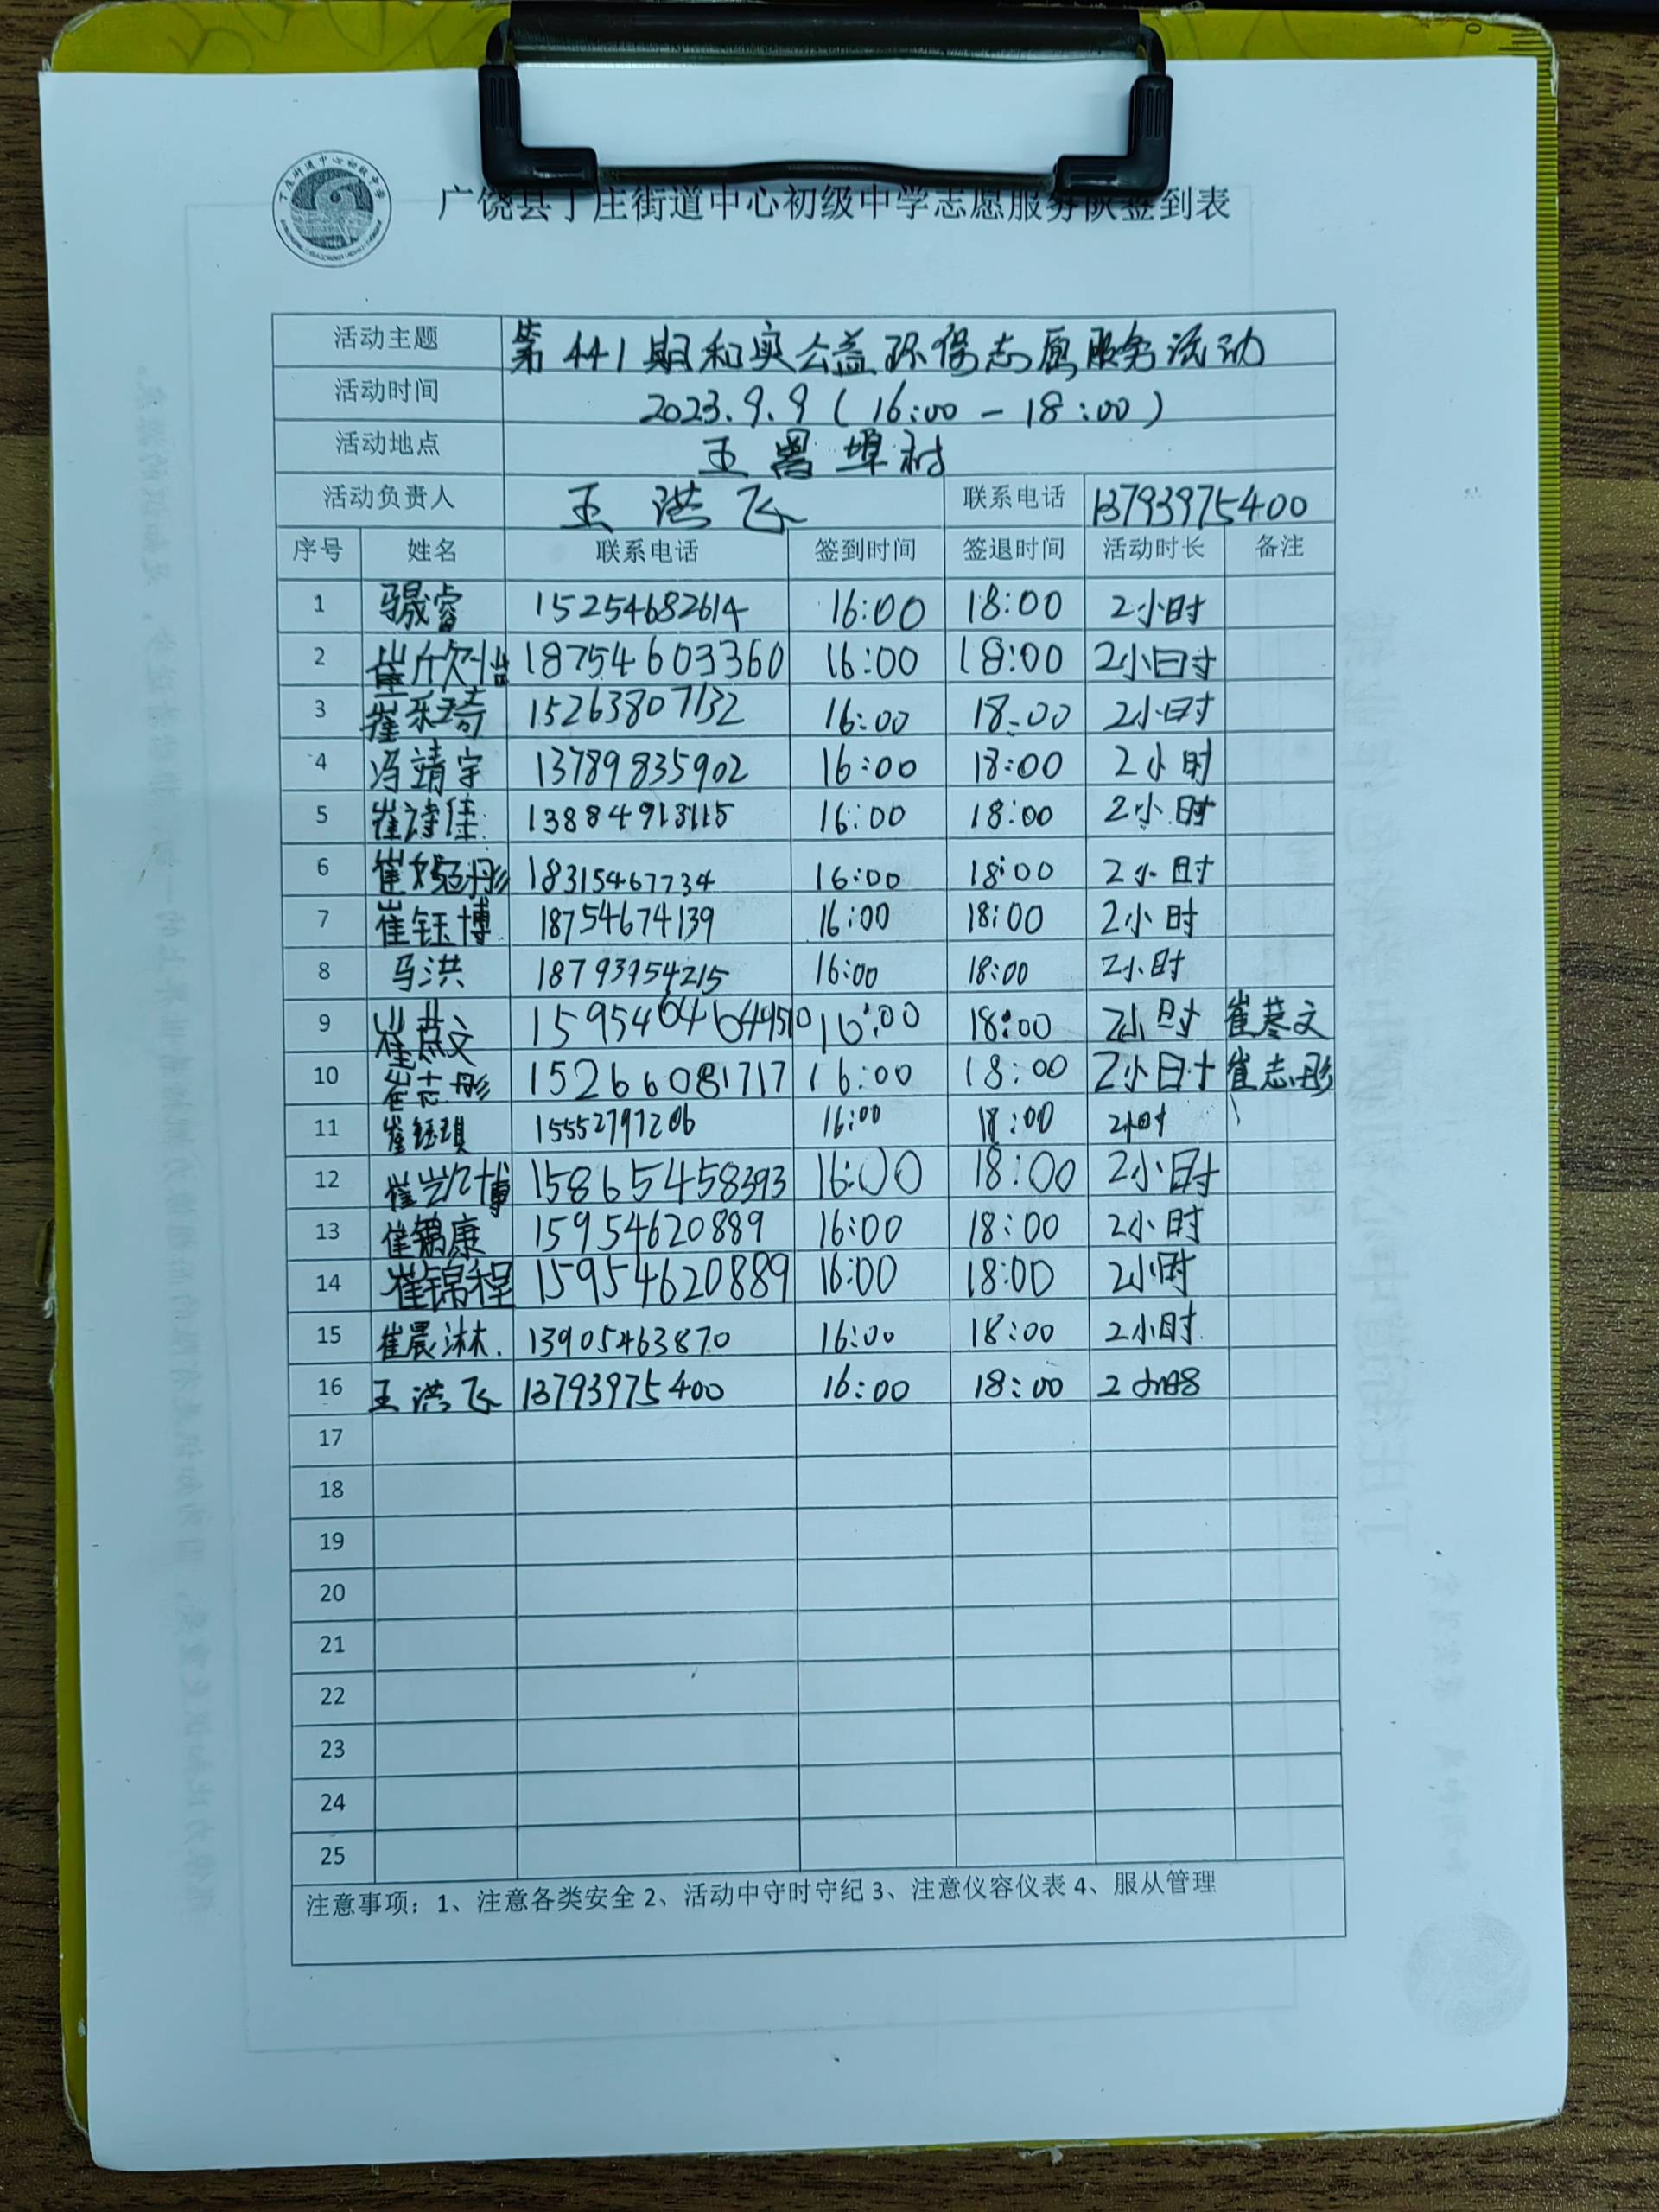 广饶县丁庄街道中心初级中学志愿服务队签到表
活动主题 第441期和实公益环保志愿服务活动
活动时间 2023.9.9 (16:00-18:00)
活动地点 王署埠村
活动负责人 王洪飞 联系电话 13793975400
序号 姓名 联系电话 签到时间 签退时间 活动时长 备注
1 马晟睿 15254682614 16:00 18:00 2小时
2 崔欣怡 18754603360 16:00 18:00 2小时
3 崔乐琦 15263807132 16:00 18:00 2小时
4 冯靖宇 13789835902 16:00 18:00 2小时
5 崔诗佳 13884913115 16:00 18:00 2小时
6 18315467734 16:00 18:00 2小时
7 崔钰博 18754674139 16:00 18:00 2小时
8 马洪 18793954215 16:00 18:00 2小时
9 16:00 18:00 2小时
10 崔志彤 15266081717 16:00 18:00 2小时 崔志彤
11 崔钰琪 15552797206 16:00 18:00 2小时
12 15865458393 16:00 18:00 2小时
13 15954620889 16:00 18:00 2小时
14 崔锦程 15954620889 16:00 18:00 2小时
15 崔晨淋 13905463870 16:00 18:00 2小时
16 王洪飞 13793975400 16:00 18:00 2小时
17
18
19
20
21
22
23
24
25
注意事项：1、注意各类安全 2、活动中守时守纪 3、注意仪容仪表 4、服从管理